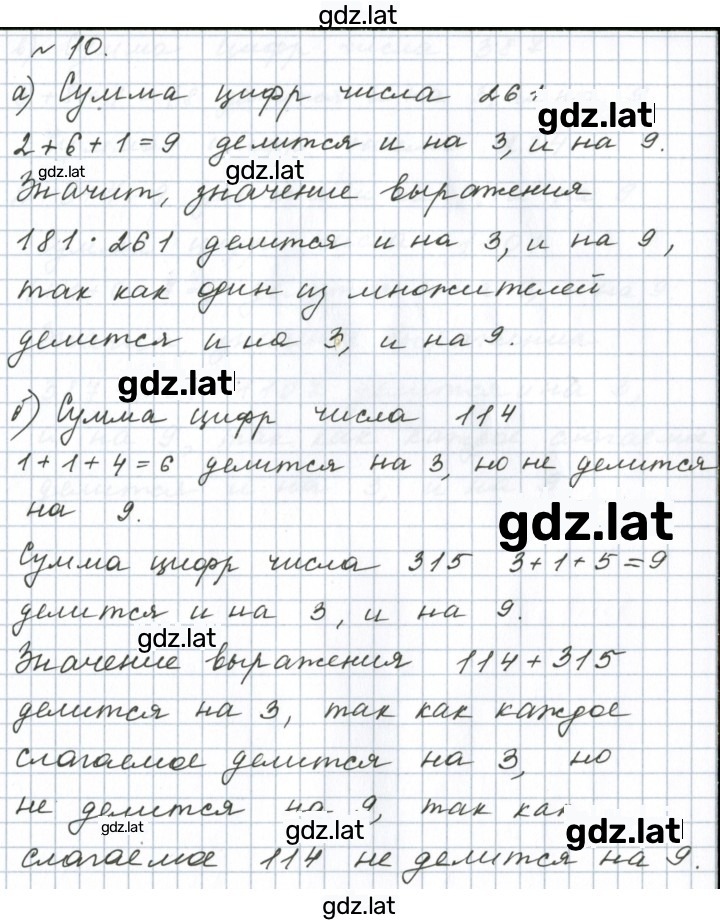 gdz.lat
№ 10.
а) Сумма цифр числа 261
gdz.lat
2+6+1=9 делится и на 3, и на 9.
gdz.lat
gdz.lat
Значит, значение выражения
181·261 делится и на 3, и на 9,
так как один из множителей
делится и на 3, и на 9.
gdz.lat
б) Сумма цифр числа 114
1+1+4=6 делится на 3, но не делится
на 9.
gdz.lat
Сумма цифр числа 315 3+1+5=9
делится и на 3, и на 9.
gdz.lat
Значение выражения 114+315
делится на 3, так как каждое
слагаемое делится на 3, но
не делится на 9, так как
gdz.lat
gdz.lat
gdz.lat
слагаемое 114 не делится на 9.
gdz.lat